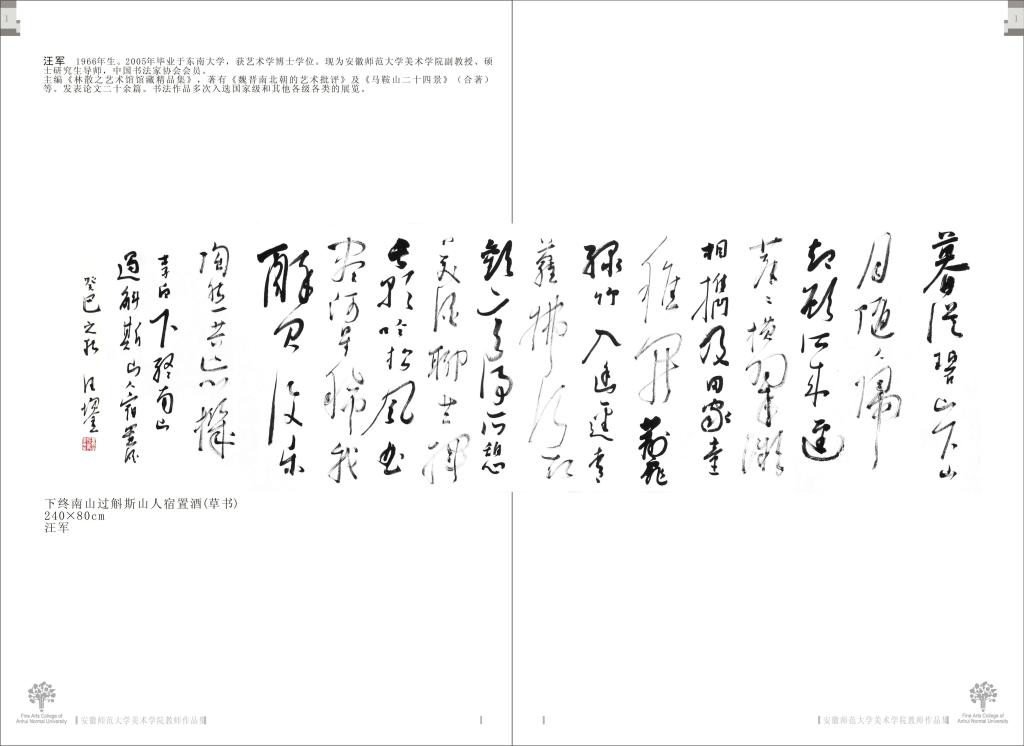 1
1
汪军 1966年生。2005年毕业于东南大学，获艺术学博士学位。现为安徽师范大学美术学院副教授、硕
士研究生导师，中国书法家协会会员。
主编《林散之艺术馆馆藏精品集》，著有《魏晋南北朝的艺术批评》及《马鞍山二十四景》（合著）
等。发表论文二十余篇。书法作品多次入选国家级和其他各级各类的展览。
暮從碧山下山
月随人歸
却顾所来逕
蒼蒼横翠微
相携及田家童
稚開荆扉
緑竹入幽逕青
蘿拂行衣
歡言得所憩
美酒聊共揮
長歌吟松風曲
盡河星稀我
醉君復樂
陶然共忘機
李白下終南山
過斛斯山人宿置酒
癸巳之秋 汪
下终南山过斛斯山人宿置酒(草书)
240×80cm
汪军
Fine Arts College of
Anhui Normal University
安徽师范大学美术学院教师作品集
安徽师范大学美术学院教师作品集
Fine Arts College of
Anhui Normal University